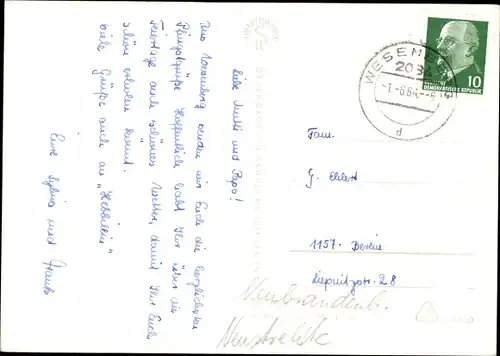 Liebe Mutti und Papa!
Aus senden wir Euch die herzlichsten
Pfingstgrüße. Hoffentlich habt Ihr über die
Feiertage auch schönes Wetter, damit Ihr Euch
schön erholen könnt.
Viele Grüße auch an
Eure Sylvia und Frank
WESENBERG
208
-1.-6.6
d
DEUTSCHE
DEMOKRATISCHE REPUBLIK
10
Fam.
G. Ehlert
1157 Berlin
Liepnitzstr. 28
Neubrandenb.
Neustrelitz